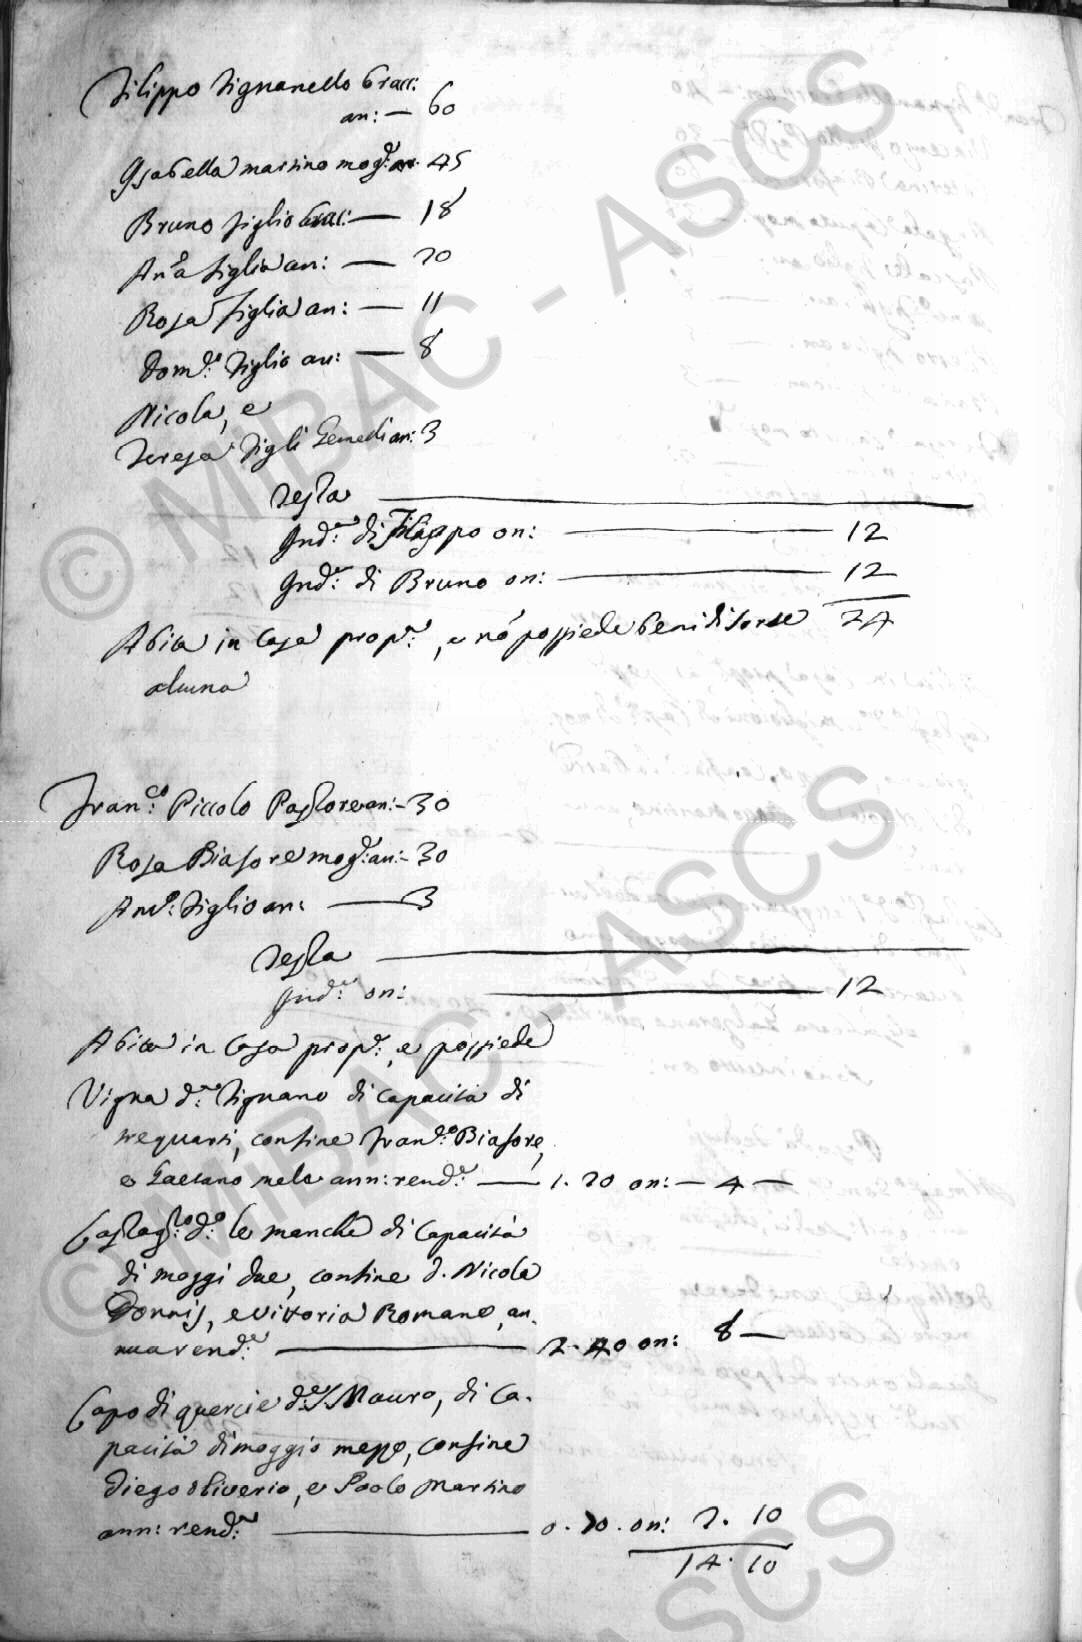 Filippo Fignanello bracc:
an: — 60
Isabella Martino mog:e an: 45
Bruno figlio brac: — 18
An:a figlia an: — 20
Rosa figlia an: — 11
Dom:co figlio an: — 8
Nicola, e
Teresa figli gemelli an: 3
Testa
Ind:a di Filippo on: 12
Ind:a di Bruno on: 12
Abita in Casa prop:a, e nō possiede beni di sorte 24
alcuna
Fran:co Piccolo Pastore an: 30
Rosa Biafore mog:e an: 30
Ant:o figlio an: — 3
Testa
Ind:a on: 12
Abita in Casa prop:a, e possiede
Vigna d:a Fignano di capacità di
trequarti, confine Fran:co Biafore,
e Gaetano mele ann: rend:a — 1.20 on: — 4 —
Castag:to d:o le manche di Capacità
di moggi due, confine d. Nicola
Donnis, e Vittoria Romano, an-
nua rend:a 2.40 on: 8 —
Capo di quercie d:o S. Mauro, di Ca-
pacità di moggio mezzo, confine
Diego oliverio, e Paolo Martino
ann: rend:a 0.70. on: 2.10
14.10
© MiBAC - ASCS
© MiBAC - ASCS
ASCS